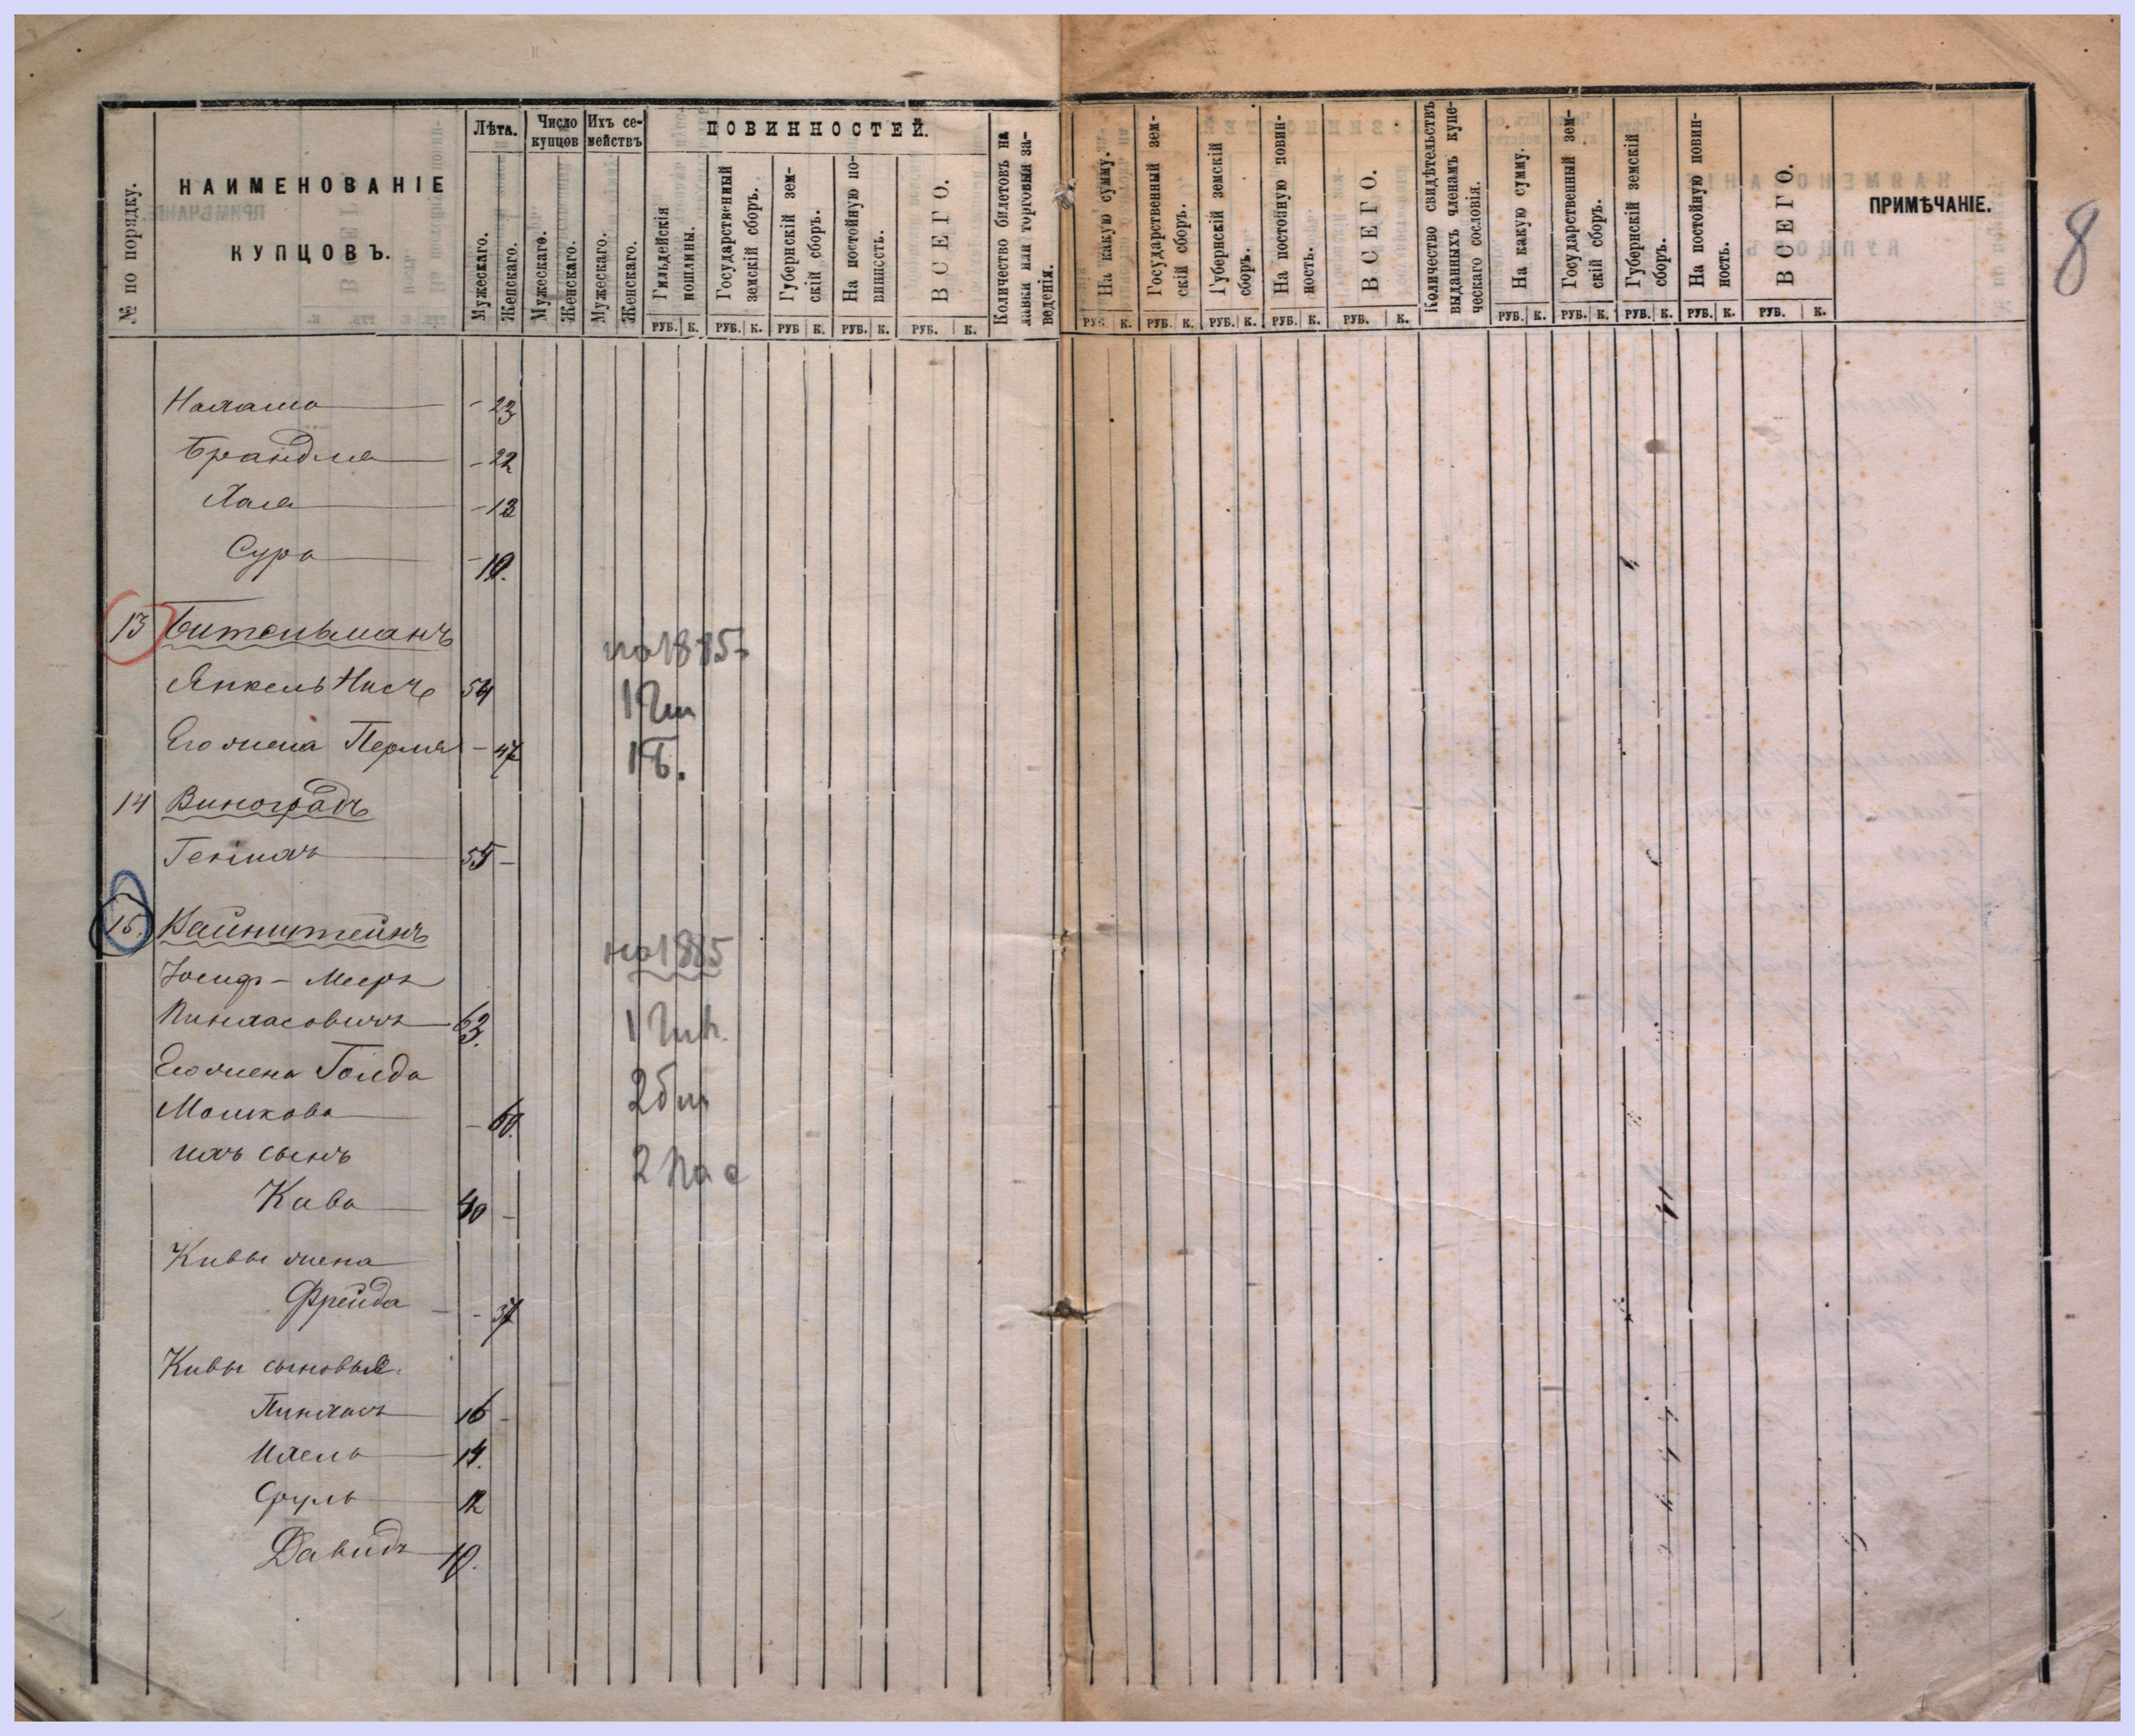 8
№ по порядку.
НАИМЕНОВАНІЕ
КУПЦОВЪ.
Лѣта.
Мужескаго.
Женскаго.
Число купцов
Мужескаго.
Женскаго.
Ихъ се-
мействъ
Мужескаго.
Женскаго.
ПОВИННОСТЕЙ.
Гильдейскія
пошлины.
РУБ. К.
Государственный
земскій сборъ.
РУБ. К.
Губернскій зем-
скій сборъ.
РУБ К.
На постойную по-
винность.
РУБ. К.
ВСЕГО.
РУБ. К.
Количество билетовъ на
лавки или торговыя за-
веденія.
На какую сумму.
РУБ. К.
Государственный зем-
скій сборъ.
РУБ. К.
Губернскій земскій
сборъ.
РУБ. К.
На постойную повин-
ность.
РУБ. К.
ВСЕГО.
РУБ. К.
Количество свидѣтельствъ
выданныхъ членамъ купе-
ческаго сословія.
На какую сумму.
РУБ. К.
Государственный зем-
скій сборъ.
РУБ. К.
Губернскій земскій
сборъ.
РУБ. К.
На постойную повин-
ность.
РУБ. К.
ВСЕГО.
РУБ. К.
ПРИМѢЧАНІЕ.
- 23
Брандля - 22
Хая - 13
Сура - 10.
13 Бительманъ
на 1885
Янкель 54
Его жена Перля - 47
1 Б.
14 Виноградъ
Генихъ 55 -
15. Вайнштейнъ
на 1885
Іосиф - Мееръ
Пинхасовичъ 63.
Его жена Голда
Мошкова - 60.
ихъ сынъ
Кива 40 -
Кивы жена
Фрейда - 37
Кивы сыновья:
Пинхасъ 16 -
Ихель 14.
Сруль 12
Давидъ 10.